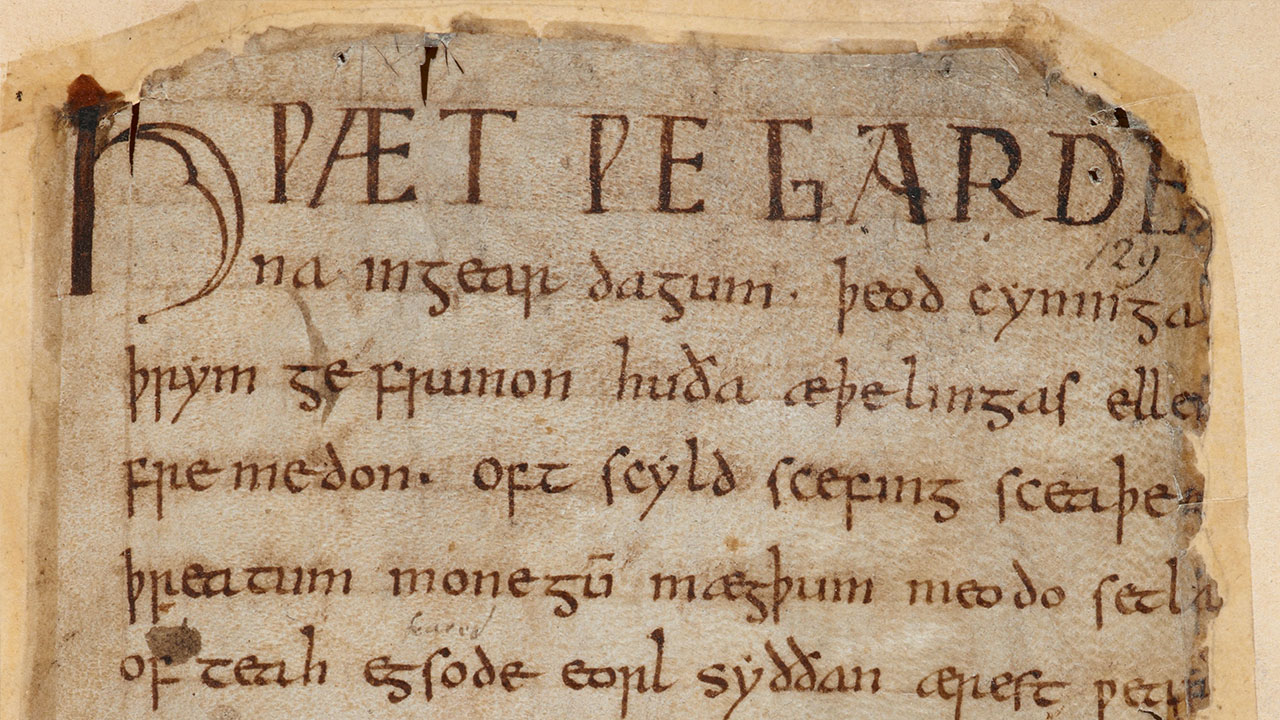 HǷÆT ǷE GARDE
129
na in gear dagum. þeod cyninga
þrym ge frunon huða æþelingas ellen
fre medon. Oft scyld scefing sceaþen
þreatum monegū mægþum meodo setla
of teah egsode eorl syððan ærest ƿear